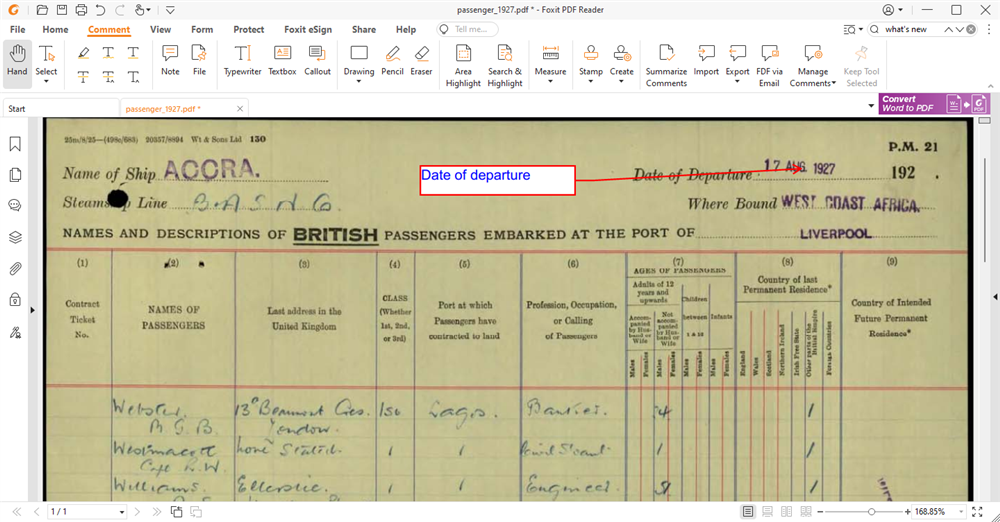 passenger_1927.pdf * - Foxit PDF Reader
File Home Comment View Form Protect Foxit eSign Share Help Tell me... what's new
Hand Select Note File Typewriter Textbox Callout Drawing Pencil Eraser Area Highlight Search & Highlight Measure Stamp Create Summarize Comments Import Export FDF via Email Manage Comments Keep Tool Selected
Start passenger_1927.pdf * Convert Word to PDF
25m/8/25—(498c/683) 20357/8894 Wt & Sons Ltd 150
P.M. 21
Name of Ship ACCRA. Date of departure Date of Departure 17 AUG. 1927 192 .
Steamship Line B.A.S.N.Co. Where Bound WEST COAST AFRICA.
NAMES AND DESCRIPTIONS OF BRITISH PASSENGERS EMBARKED AT THE PORT OF LIVERPOOL
(1) (2) (3) (4) (5) (6) (7) (8) (9)
Contract Ticket No.
NAMES OF PASSENGERS
Last address in the United Kingdom
CLASS (Whether 1st, 2nd, or 3rd)
Port at which Passengers have contracted to land
Profession, Occupation, or Calling of Passengers
AGES OF PASSENGERS
Adults of 12 years and upwards
Accompanied by Husband or Wife
Not accompanied by Husband or Wife
Children between 1 & 12
Infants
Males Females Males Females Males Females Males Females
Country of last Permanent Residence*
England Wales Scotland Northern Ireland Irish Free State Other parts of the British Empire Foreign Countries
Country of Intended Future Permanent Residence*
Webster 13 Beaumont Cres. 1st Lagos. 1
M. G. B. London.
Westmacott 1 1 1 1
Capt. W.
Williams Ellerslie. 1 1 Engineer 1
1 / 1 168.85%